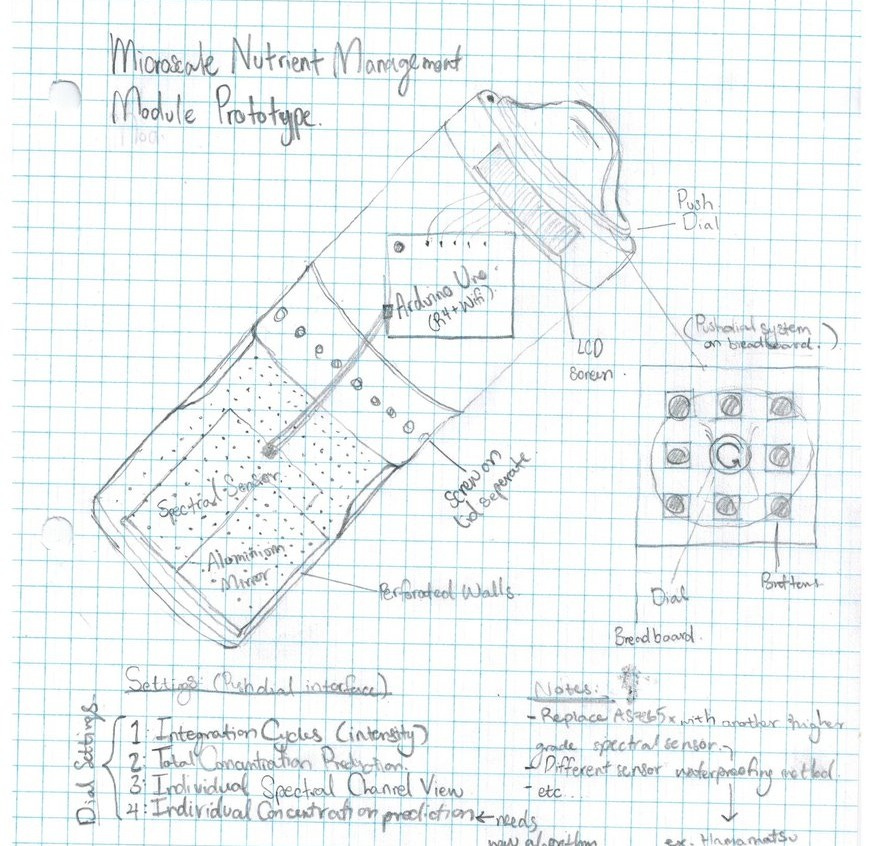 Microscale Nutrient Management
Module Prototype.
Push
Dial
Arduino Uno
(R4+Wifi)
LCD
Screen
(Pushdial system
on breadboard.)
Screw on
Lid seperate
Spectral Sensor
Aluminium
Mirror
Perforated Walls
Dial
Buttons
Breadboard.
Settings: (Pushdial interface)
Dial Settings
1: Integration Cycles (intensity)
2: Total Concentration Prediction.
3: Individual Spectral Channel View
4: Individual Concentration prediction ← needs
new algorithm
Notes:
- Replace AS7265x with another higher
grade spectral sensor.
- Different sensor waterproofing method.
- etc...
ex. Hamamatsu